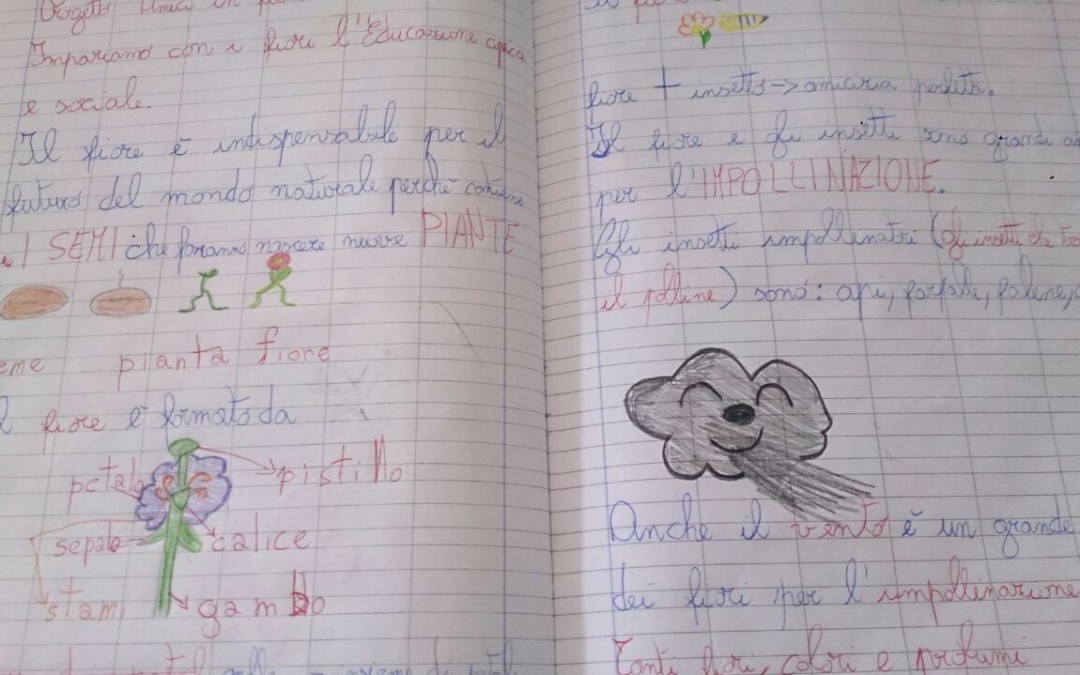 Progetto Amici in
Impariamo con i fiori l'Educazione civica
e sociale.
Il fiore è indispensabile per il
futuro del mondo naturale perché contiene
i SEMI che faranno nascere nuove PIANTE
eme pianta fiore
l fiore è formato da
petalo pistillo
sepalo calice
stami gambo
fiore + insetto -> amicizia perfetta.
Il fiore e gli insetti sono grandi a
per l'IMPOLLINAZIONE.
Gli insetti impollinatori (gli insetti che
il polline) sono: api, farfalle, falene,
Anche il vento è un grande
dei fiori per l'impollinazione
Tanti fiori, colori e profumi